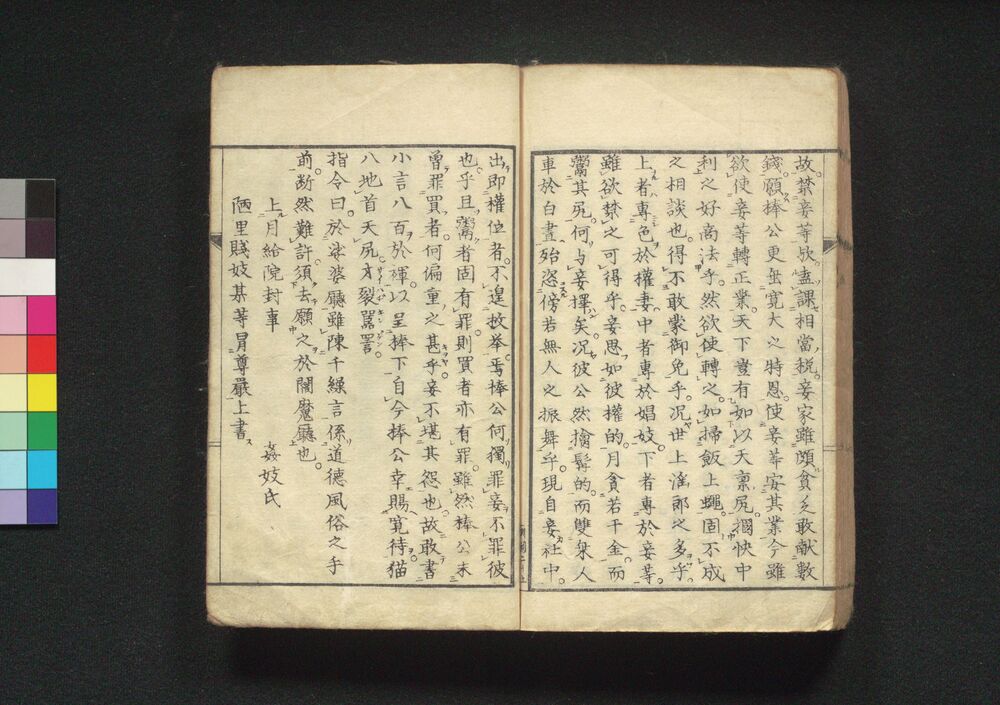 故。禁妾等欤。盡課相當税。妾家雖頗貧乏敢献數
錢。願捧公更垂寛大之特恩。使妾等安其業今雖
欲使妾等轉正業。天下豈有如以天禀尻摑快中
利之好商法乎。然欲使轉之。如掃飯上蠅。固不成
之相談也。得不敢蒙御免乎。况世上淫郎之多乎。
上者專色於權妻中者專於娼妓。下者專於妾等。
雖欲禁之可得乎。妾思如彼權的。月貪若干金。而
鬻其尻。何与妾擇矣。况彼公然擔髯的。而雙乗人
車於白晝。殆恣傍若無人之振舞乎。現自妾社中。
出即權位者。不遑枚挙。焉捧公何獨罪妾不罪彼
也乎。且鬻者固有罪。則買者亦有罪。雖然捧公未
曾罪買者。何偏重之甚乎。妾不堪其怨也。故敢書
小言八百於褌。以呈捧下自今捧公幸賜寛待猫
八地首天尻才裂罵詈。
指令曰。於娑婆廳雖陳千繰言係道德風俗之手
前。断然難許。須去願之於閻魔廳也。
上月給院封事
姦妓氏
陋里賤妓某等冒尊嚴上書